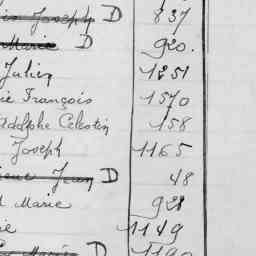 Joseph D 837
Marie D 920.
Julien 1251
François 1570
Adolphe Celestin 158
Joseph 1165
Jean D 48
Marie 921
1149
Marie D 1190